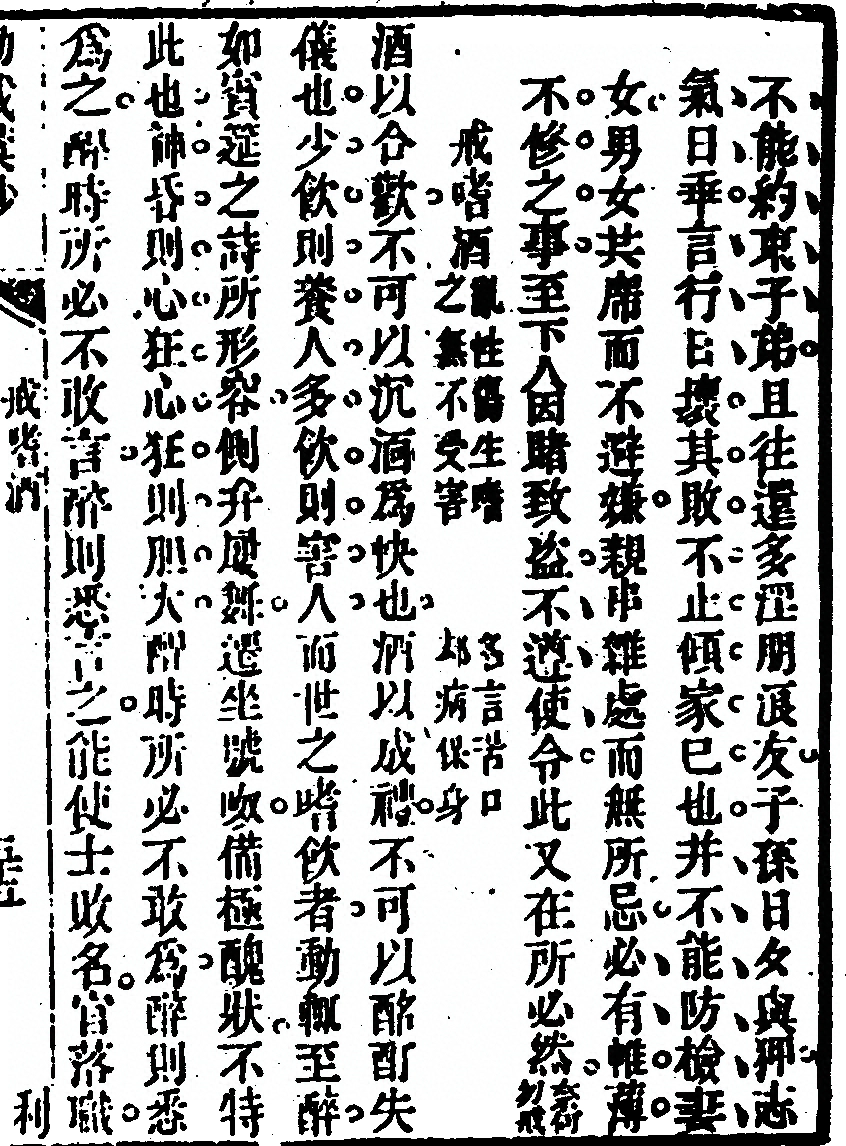 不能約束子弟且往還多淫朋浪友子孫日夕與狎志
氣日乖言行日壞其敗不止傾家已也并不能防檢妻
女男女共席而不避嫌親串雜處而無所忌必有帷薄
不修之事至下人因賭致盜不遵使令此又在所必然
戒嗜酒
亂性傷生嗜 多言浩口
之無不受害 却病保身
酒以合歡不可以沉湎為快也酒以成禮不可以酩酊失
儀也少飲則養人多飲則害人而世之嗜飲者動輒至醉
如賓筵之詩所形容側弁屢舞遷坐號呶備極醜狀不特
此也神昏則心狂心狂則胆大醒時所必不敢為醉則悉
為之醒時所必不敢言醉則悉言之能使士敗名官落職
戒嗜酒
利